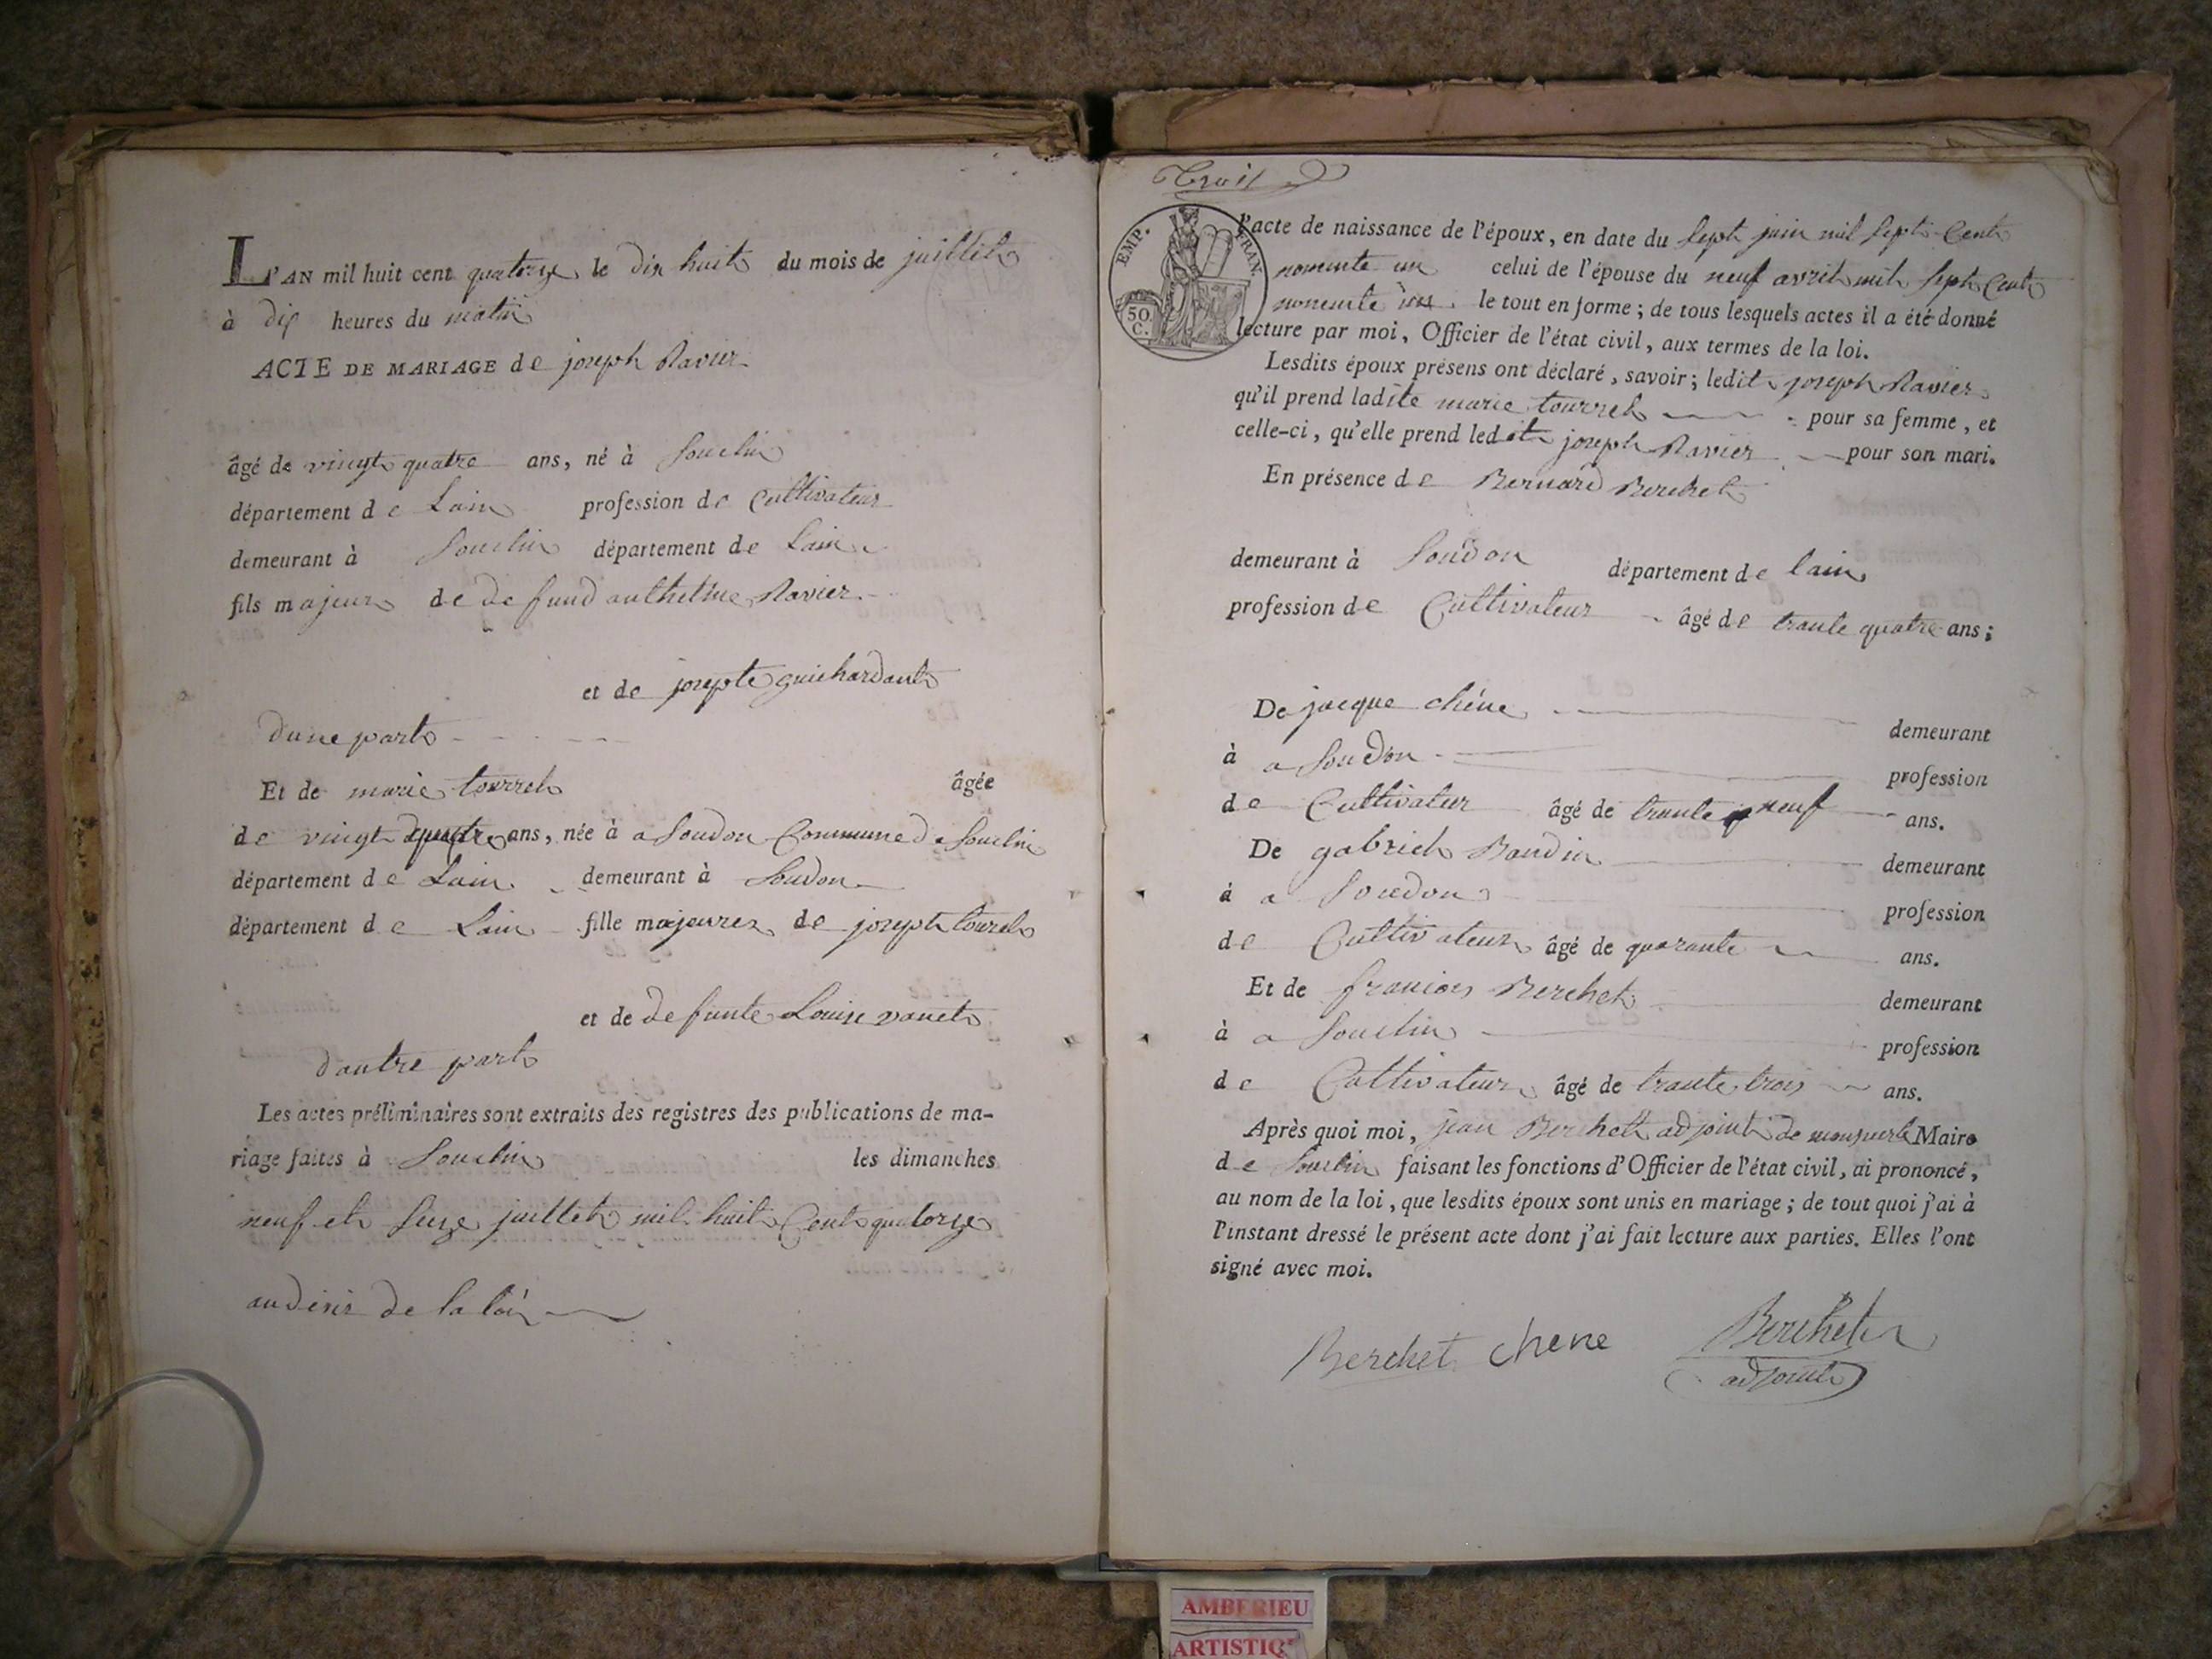 L'AN mil huit cent quatorze le dix huit du mois de juillet
à dix heures du matin
ACTE DE MARIAGE de joseph Ravier
âgé de vingt quatre ans, né à Souclin
département de Lain profession de Cultivateur
demeurant à Souclin département de Lain
fils majeur de defund anthelme Ravier
et de josepte guichardant
dune part
Et de marie tourrel âgée
de vingt quatre ans, née à a Soudon Commune de Souclin
département de Lain demeurant à Soudon
département de Lain fille majeure de joseph tourel
et de defunte Louise
dautre part
Les actes préliminaires sont extraits des registres des publications de ma-
riage faites à Souclin les dimanches
neuf et seize juillet mil huit Cent quatorze
au desir de la loi
l'acte de naissance de l'époux, en date du sept juin mil sept Cent
nonente un celui de l'épouse du neuf avril mil sept Cent
nonente le tout en forme ; de tous lesquels actes il a été donné
lecture par moi, Officier de l'état civil, aux termes de la loi.
Lesdits époux présens ont déclaré, savoir ; ledit joseph Ravier
qu'il prend ladite marie tourrel pour sa femme, et
celle-ci, qu'elle prend ledit joseph Ravier pour son mari.
En présence de Bernard Berchet
demeurant à Soudon département de lain
profession de Cultivateur âgé de trante quatre ans ;
De jacque chêne demeurant
à a Soudon profession
de Cultivateur âgé de trante neuf ans.
De gabriel Baudin demeurant
à a Soudon profession
de Cultivateur âgé de quarante ans.
Et de francois Berchet demeurant
à a Souclin profession
de Cultivateur âgé de trante trois ans.
Après quoi moi, jean Berchet adjoint de Maire
de Souclin faisant les fonctions d'Officier de l'état civil, ai prononcé,
au nom de la loi, que lesdits époux sont unis en mariage ; de tout quoi j'ai à
l'instant dressé le présent acte dont j'ai fait lecture aux parties. Elles l'ont
signé avec moi.
Berchet chene Berchet
adjoint
EMP. FRAN.
50
C.
AMBERIEU
ARTISTIQ